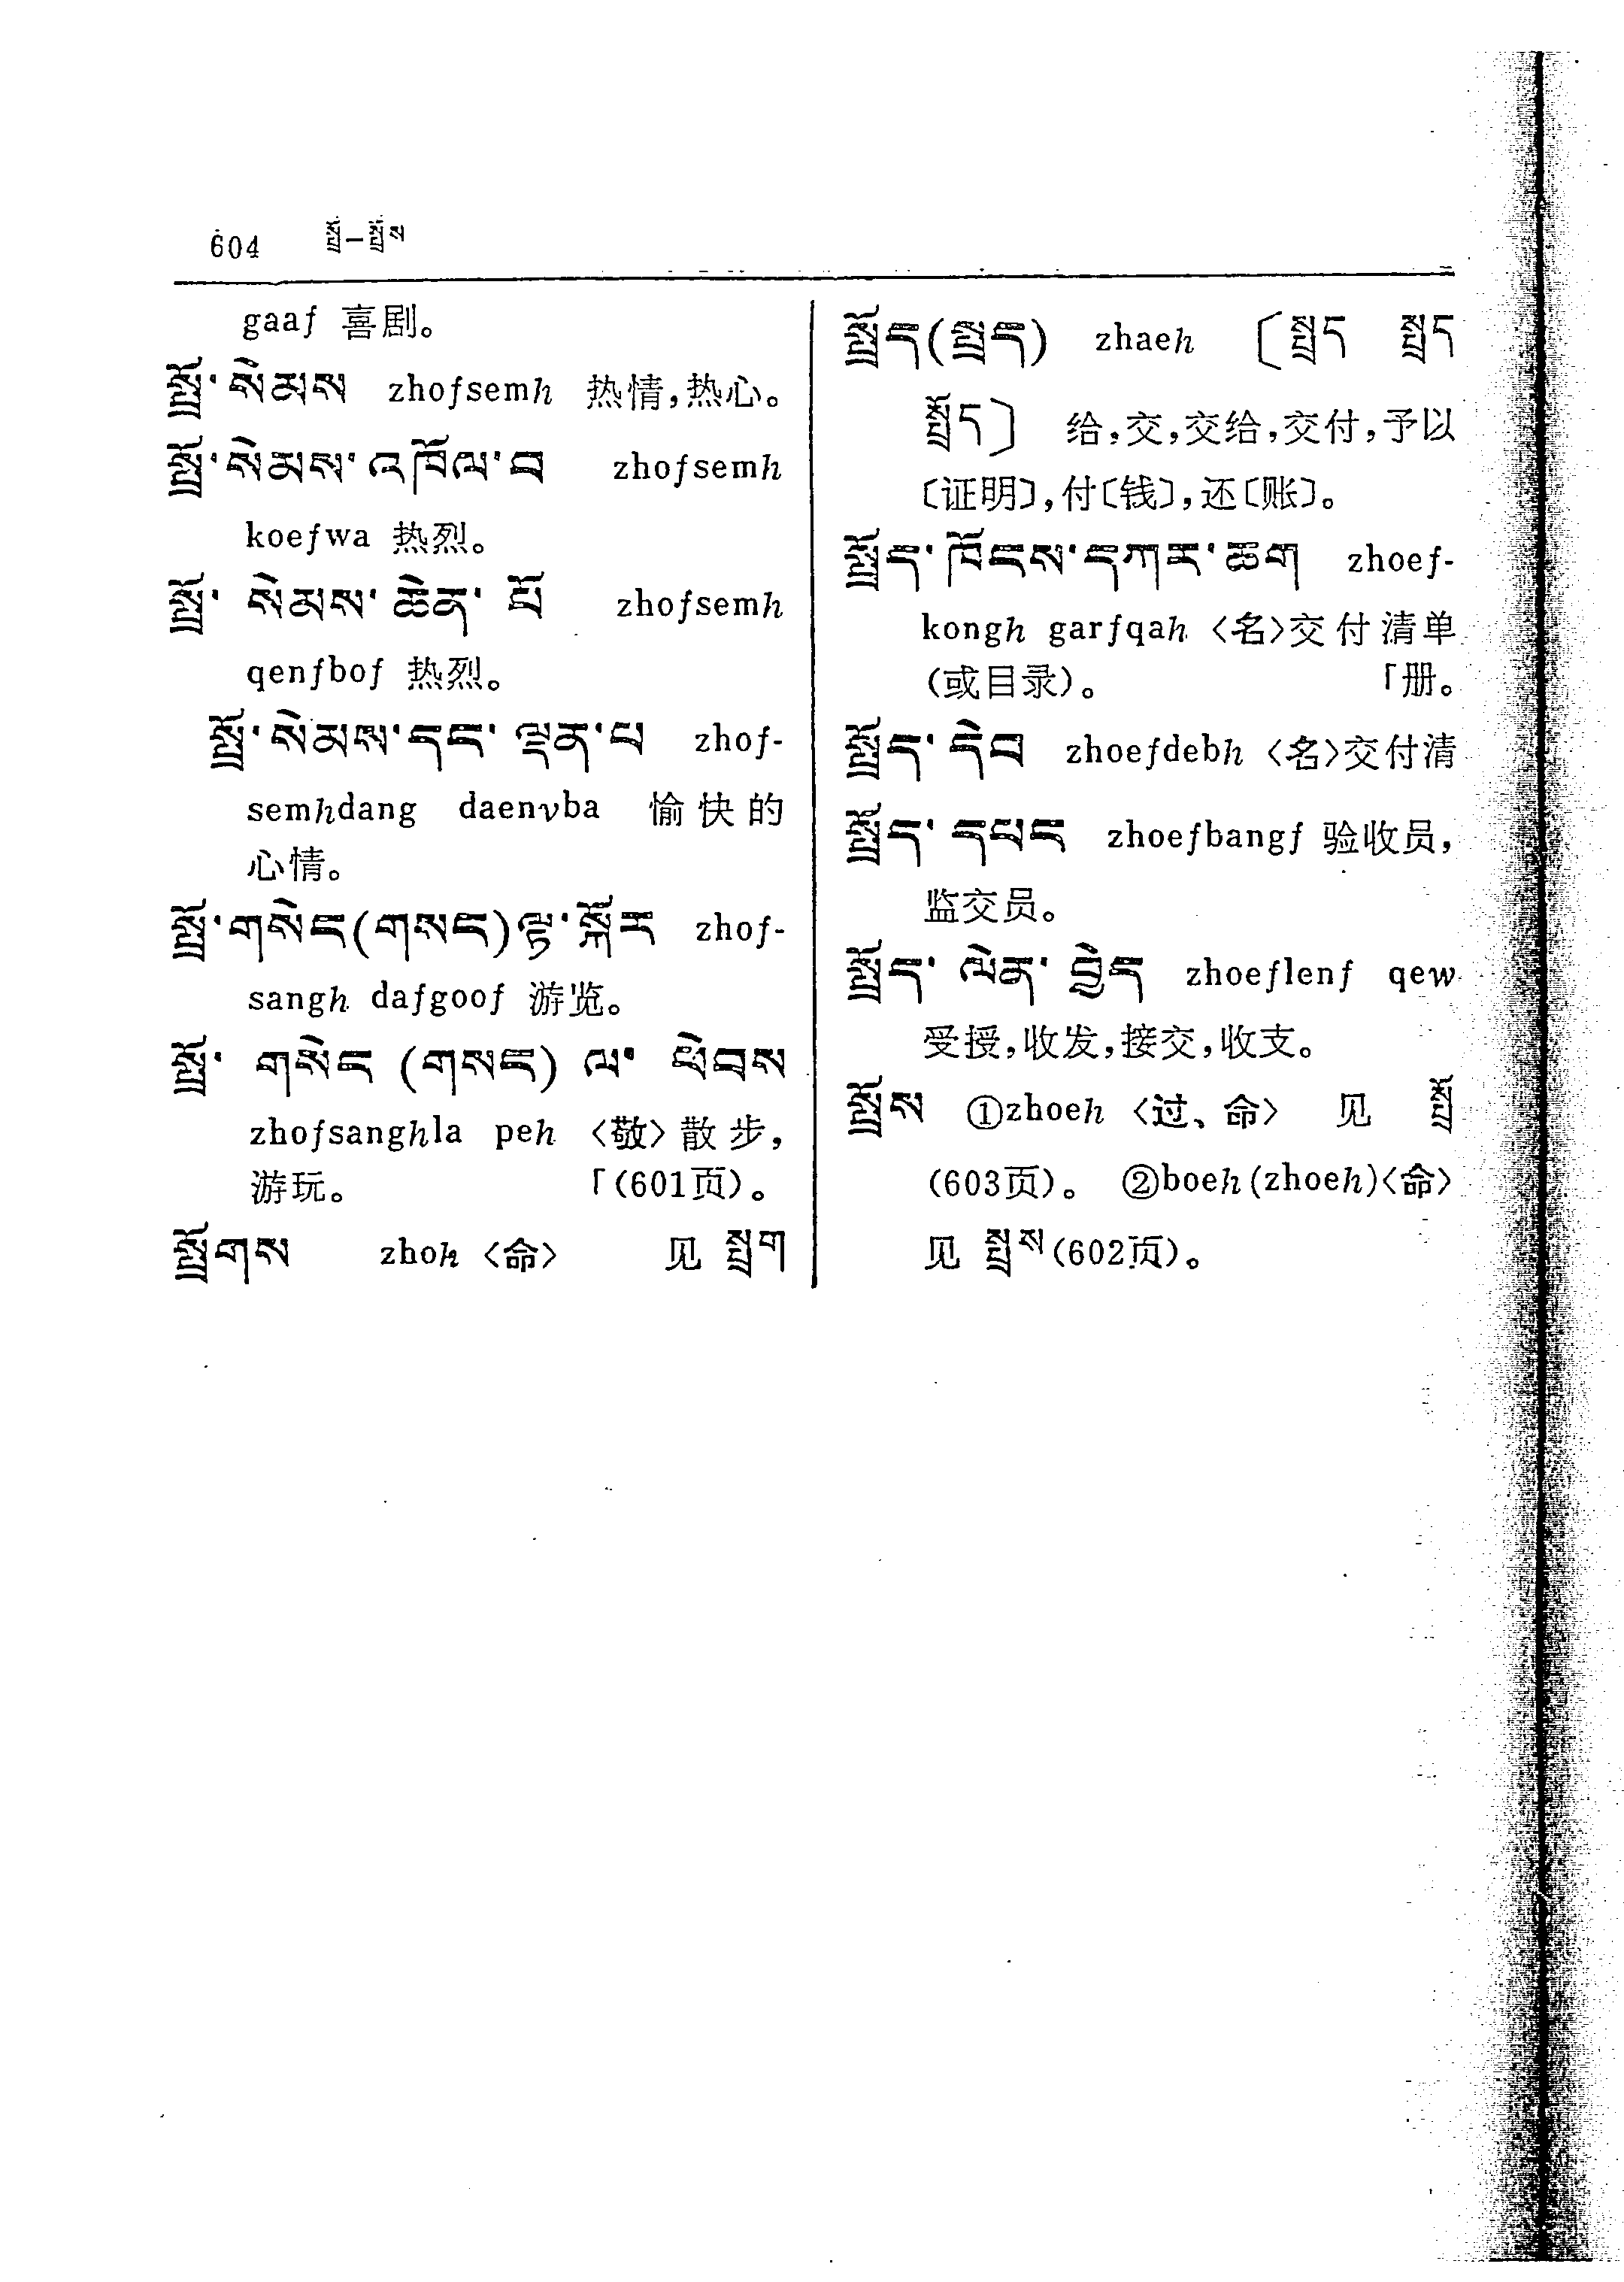 604 སྤྲོ–སྤྲོས
gaaf 喜剧。
སྤྲོ་སེམས zhofsemh 热情,热心。
སྤྲོ་སེམས་འཁོལ་བ zhofsemh
koefwa 热烈。
སྤྲོ་སེམས་ཆེན་པོ zhofsemh
qenfbof 热烈。
སྤྲོ་སེམས་དང་ལྡན་པ zhof-
semhdang daenvba 愉快的
心情。
སྤྲོ་གསེང(གསང)ལྟ་སྐོར zhof-
sangh dafgoof 游览。
སྤྲོ་གསེང(གསང)ལ་ཕེབས
zhofsanghla peh 〈敬〉散步,
游玩。 「(601页)。
སྤྲོགས zhoh 〈命〉 见 སྤྲག
སྤྲོད(སྤྲད) zhaeh 〔སྤྲད སྤྲད
སྤྲོད〕 给,交,交给,交付,予以
〔证明〕,付〔钱〕,还〔账〕。
སྤྲོད་ཁོངས་དཀར་ཆག zhoef-
kongh garfqah 〈名〉交付清单
(或目录)。 「册。
སྤྲོད་དེབ zhoefdebh 〈名〉交付清
སྤྲོད་དཔང zhoefbangf 验收员,
监交员。
སྤྲོད་ལེན་བྱེད zhoeflenf qew
受授,收发,接交,收支。
སྤྲོས ①zhoeh 〈过、命〉 见 སྤྲོ
(603页)。 ②boeh(zhoeh)〈命〉
见 སྤྲས(602页)。